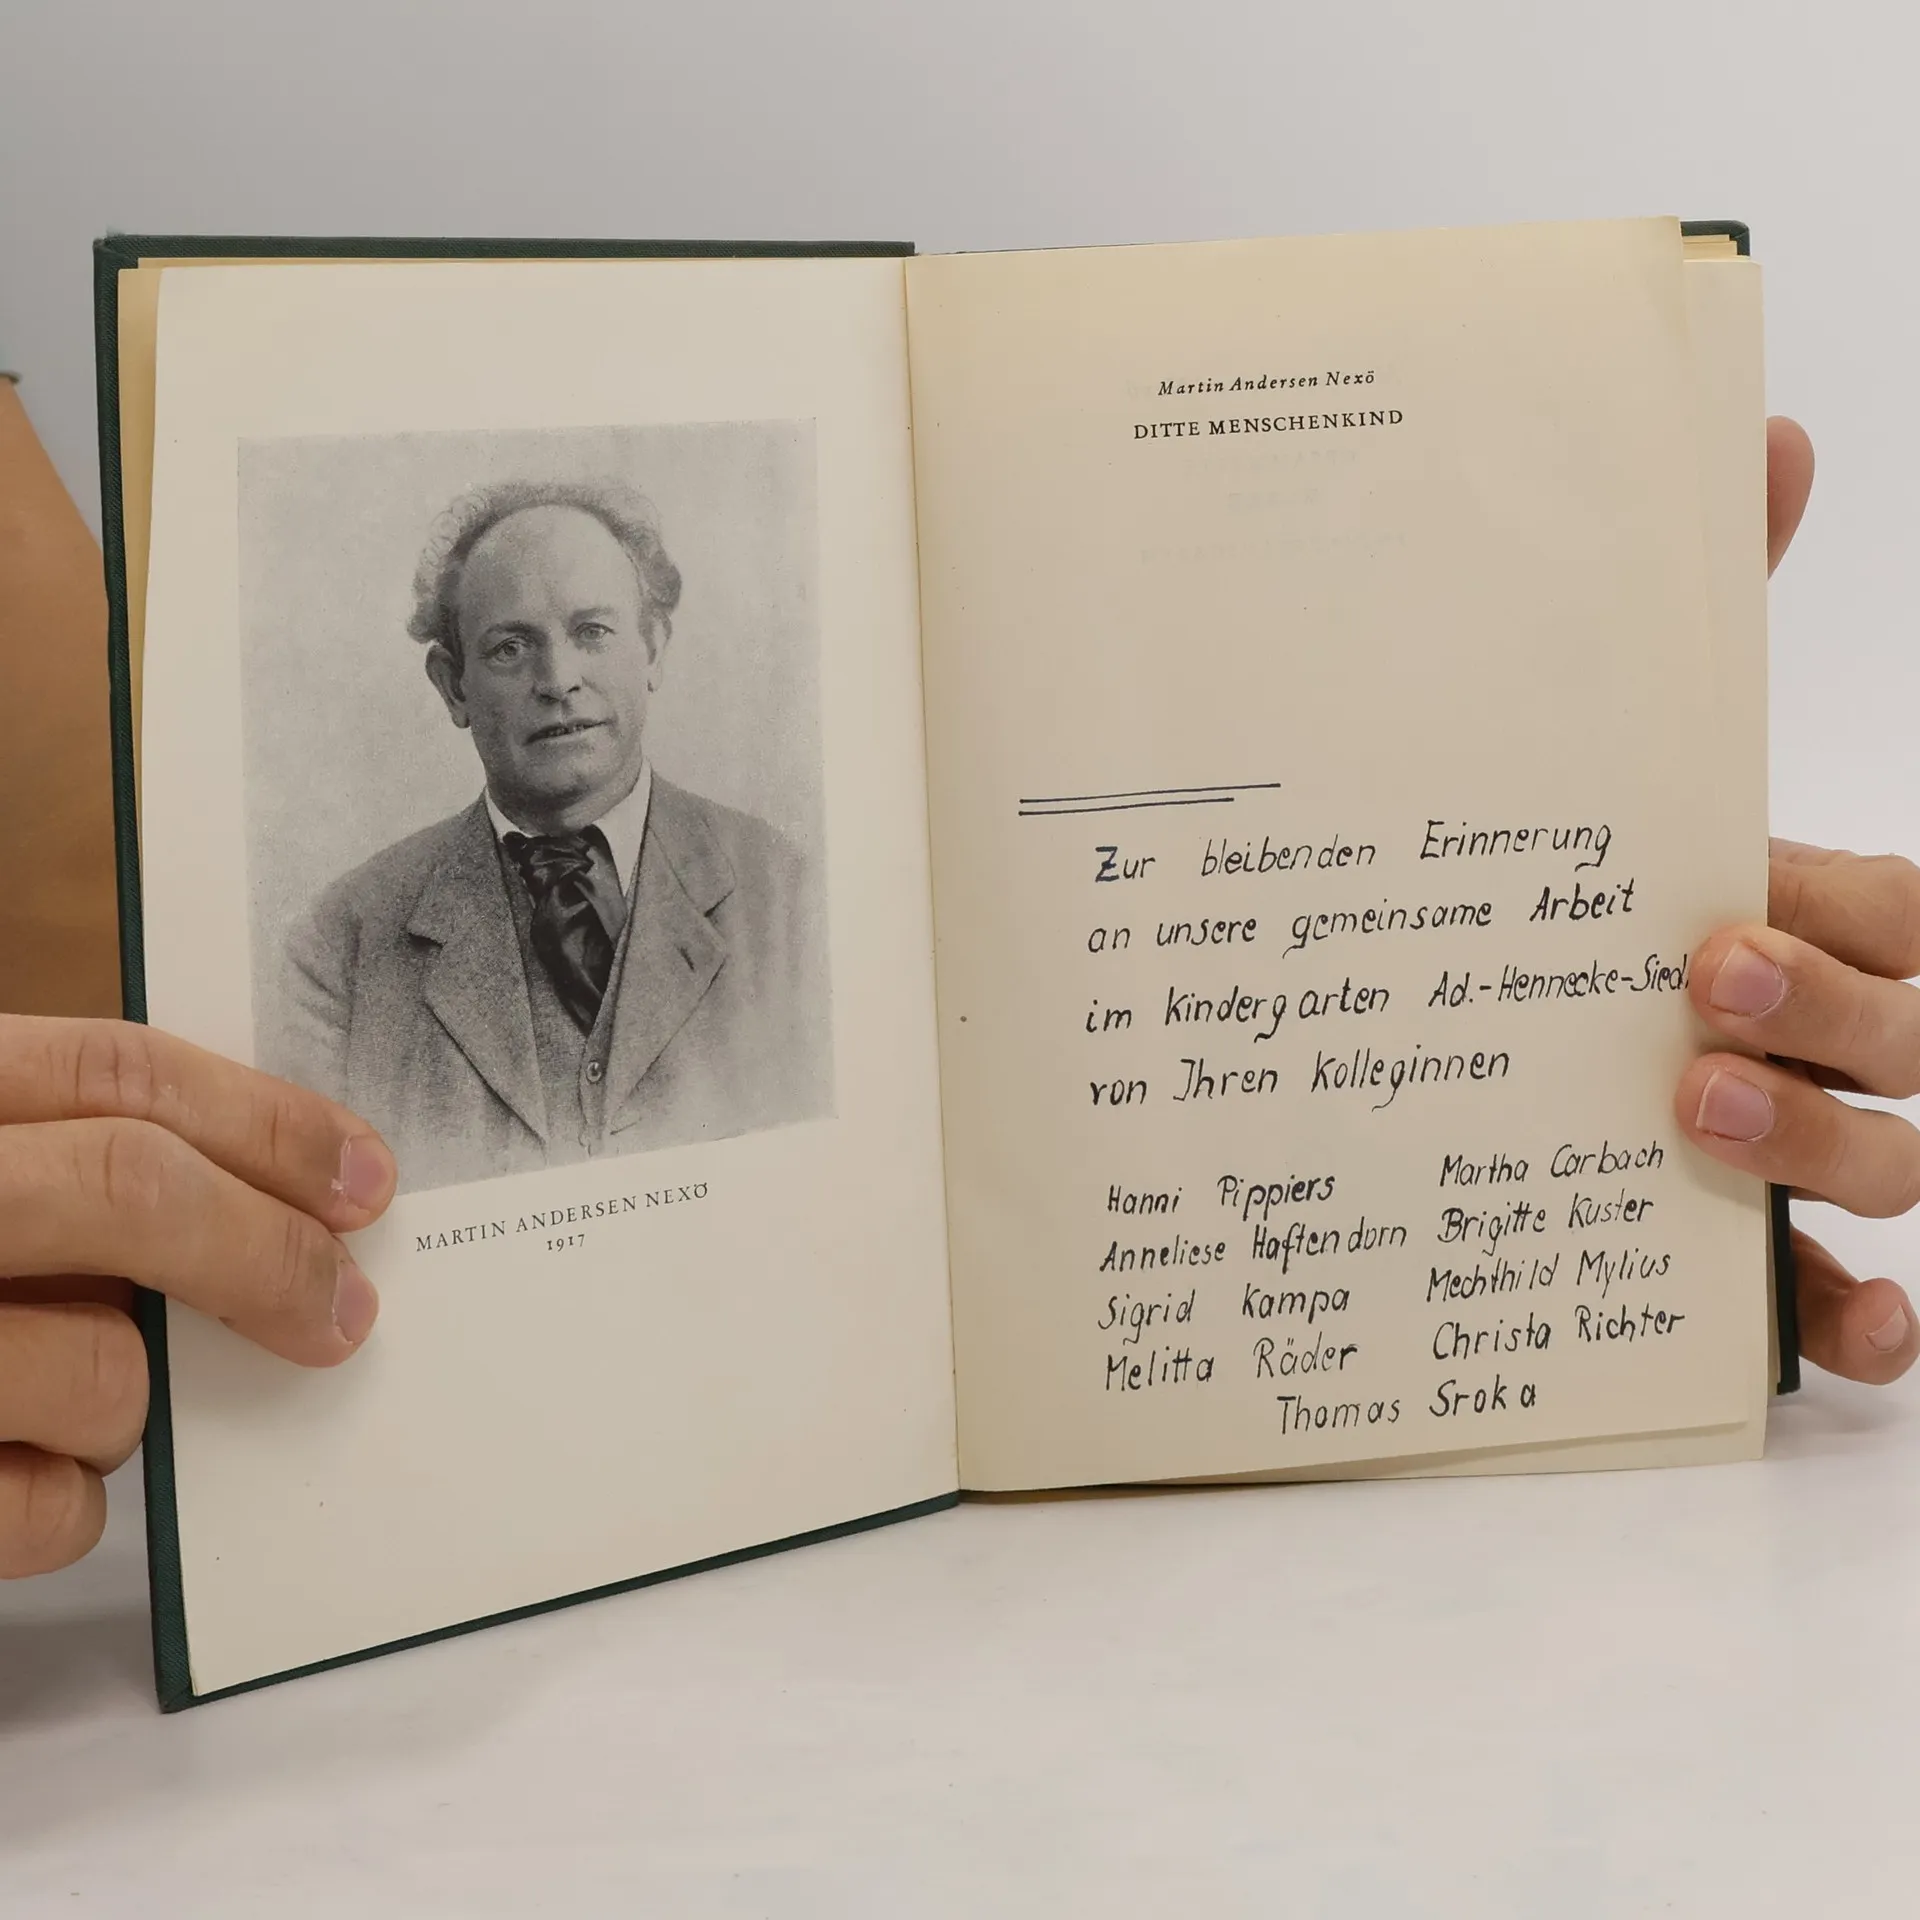 MARTIN ANDERSEN NEXÖ
1917
Martin Andersen Nexö
DITTE MENSCHENKIND
Zur bleibenden Erinnerung
an unsere gemeinsame Arbeit
im Kindergarten Ad.-Hennecke-Siedl.
von Ihren Kolleginnen
Hanni Pippiers Martha Carbach
Anneliese Haftendorn Brigitte Kuster
Sigrid Kampa Mechthild Mylius
Melitta Räder Christa Richter
Thomas Sroka